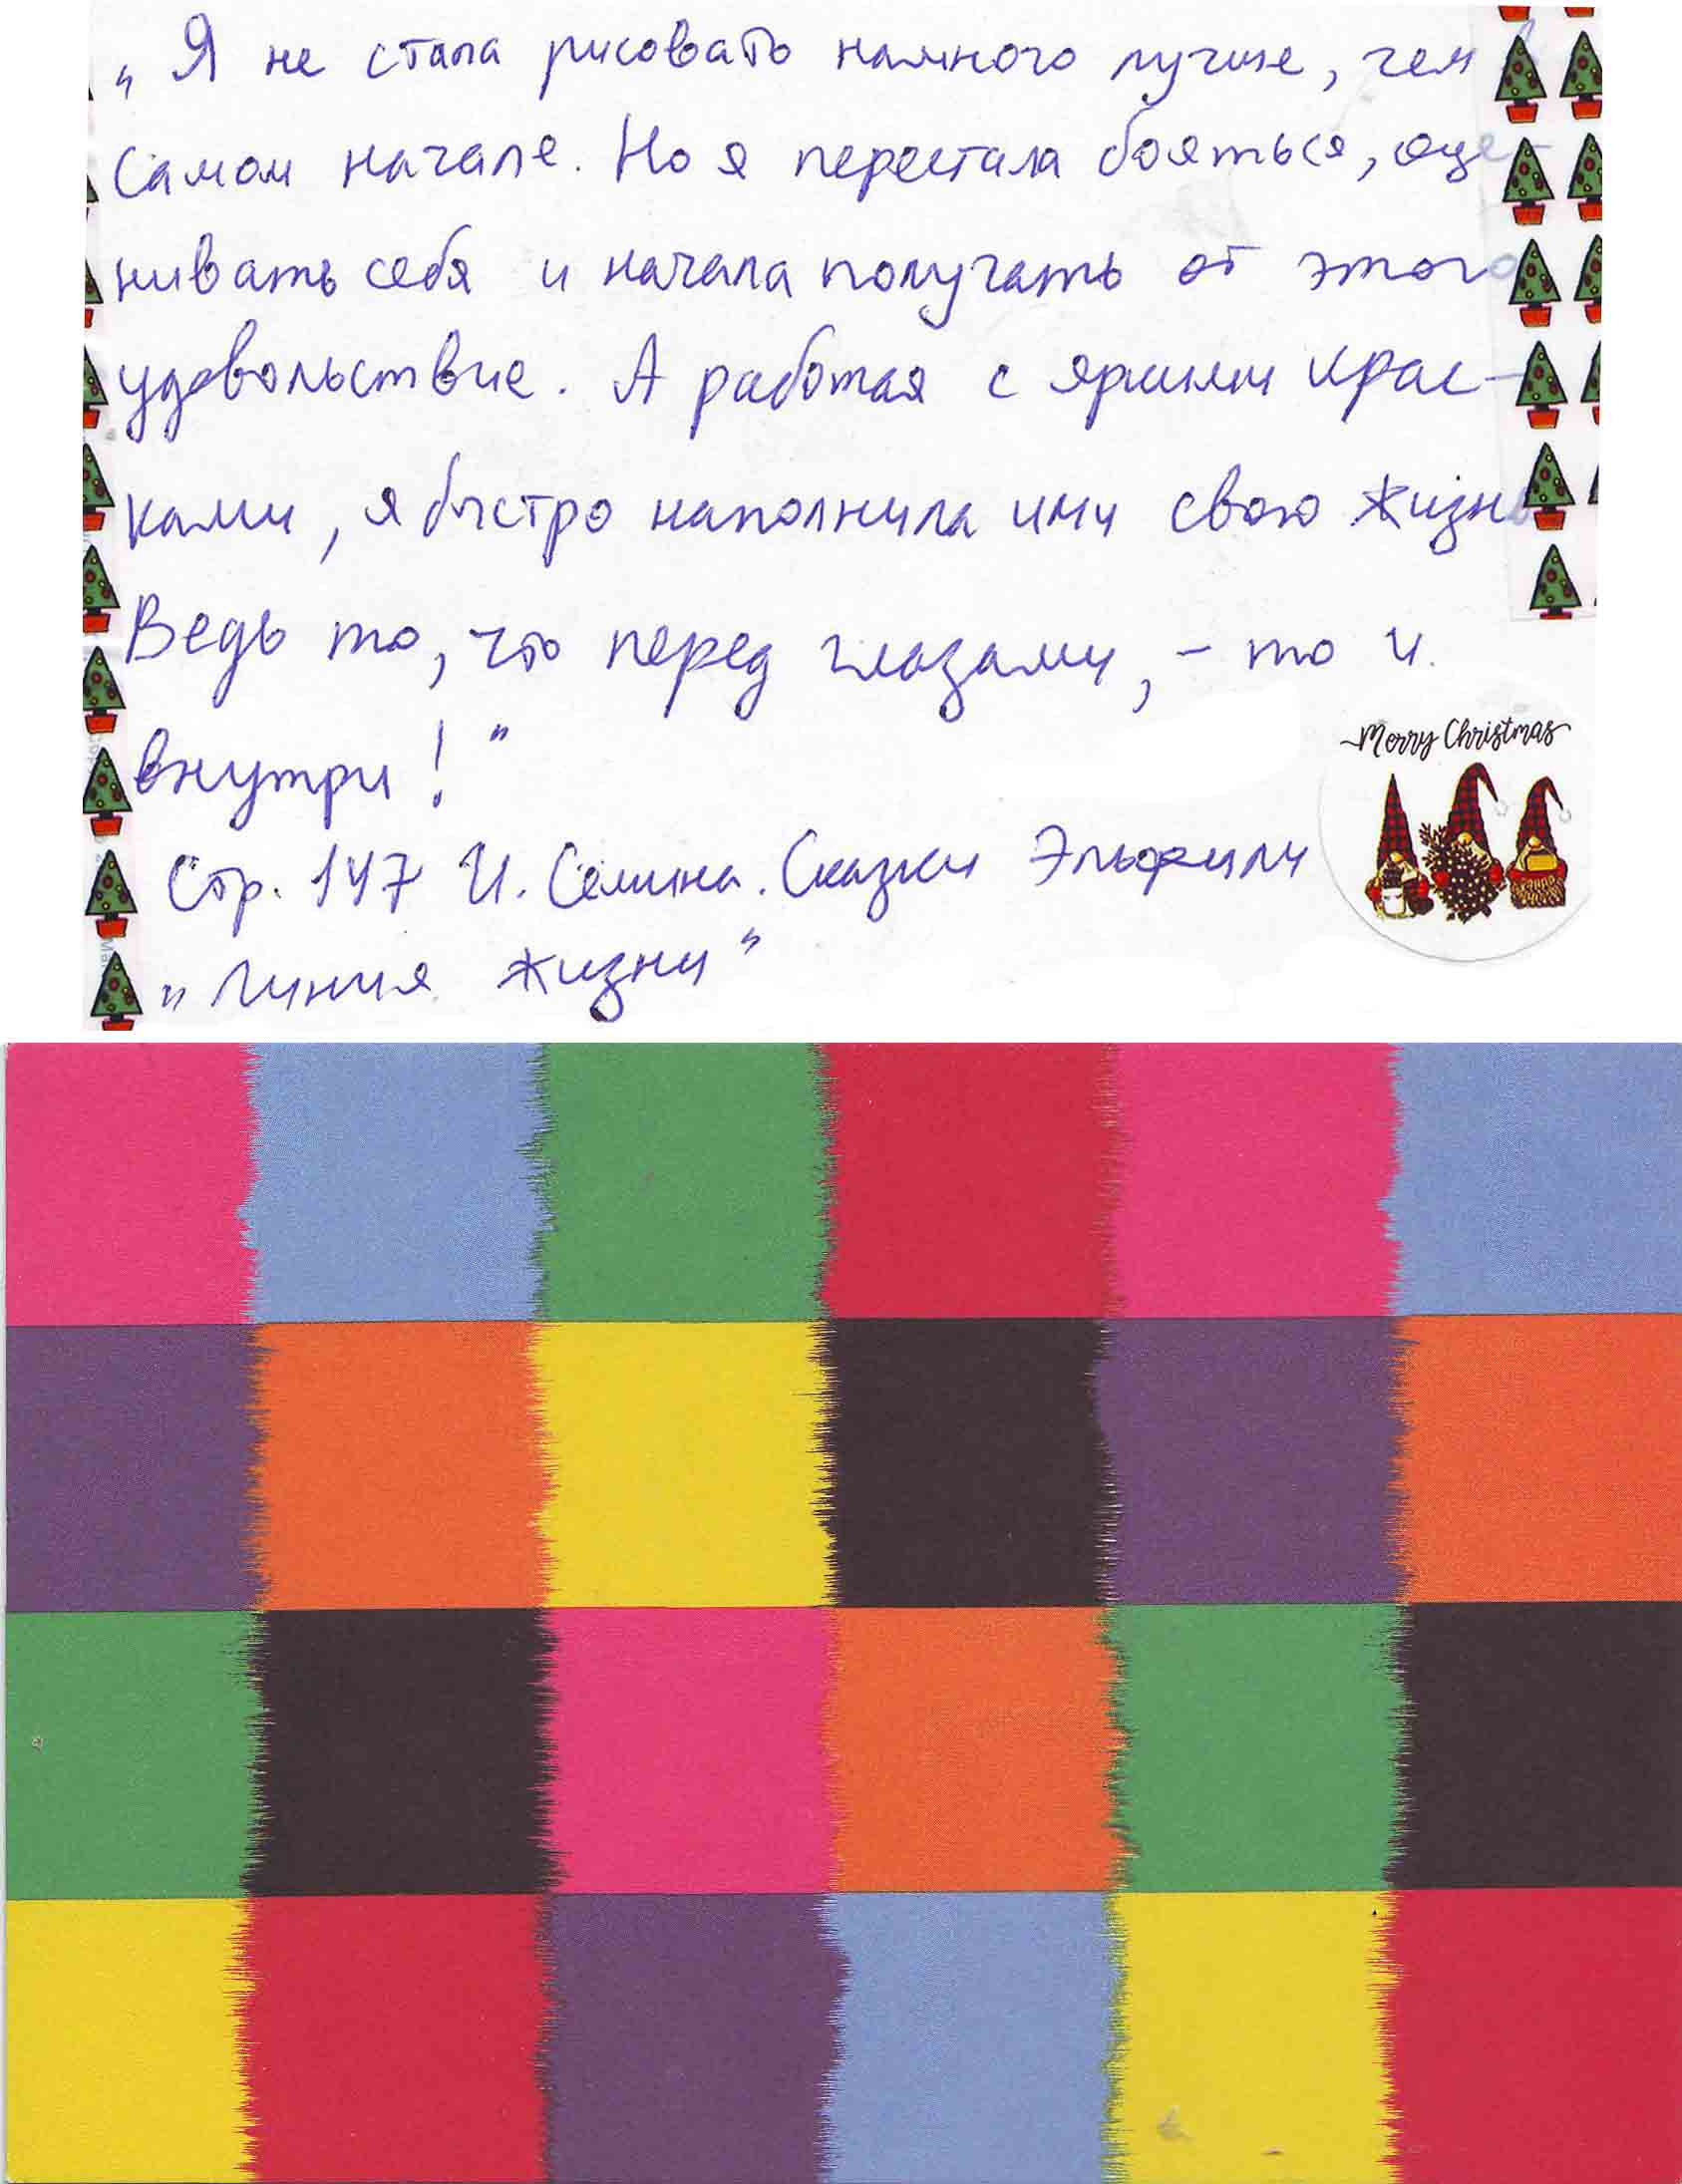 „Я не стала рисовать намного лучше, чем в
самом начале. Но я перестала бояться, оце-
нивать себя и начала получать от этого
удовольствие. А работая с яркими крас-
ками, я быстро наполнила ими свою жизнь
Ведь то, что перед глазами, - то и
внутри!"
Merry Christmas
Стр. 147 И. Семина. Сказки Эльфики
„Линия жизни"